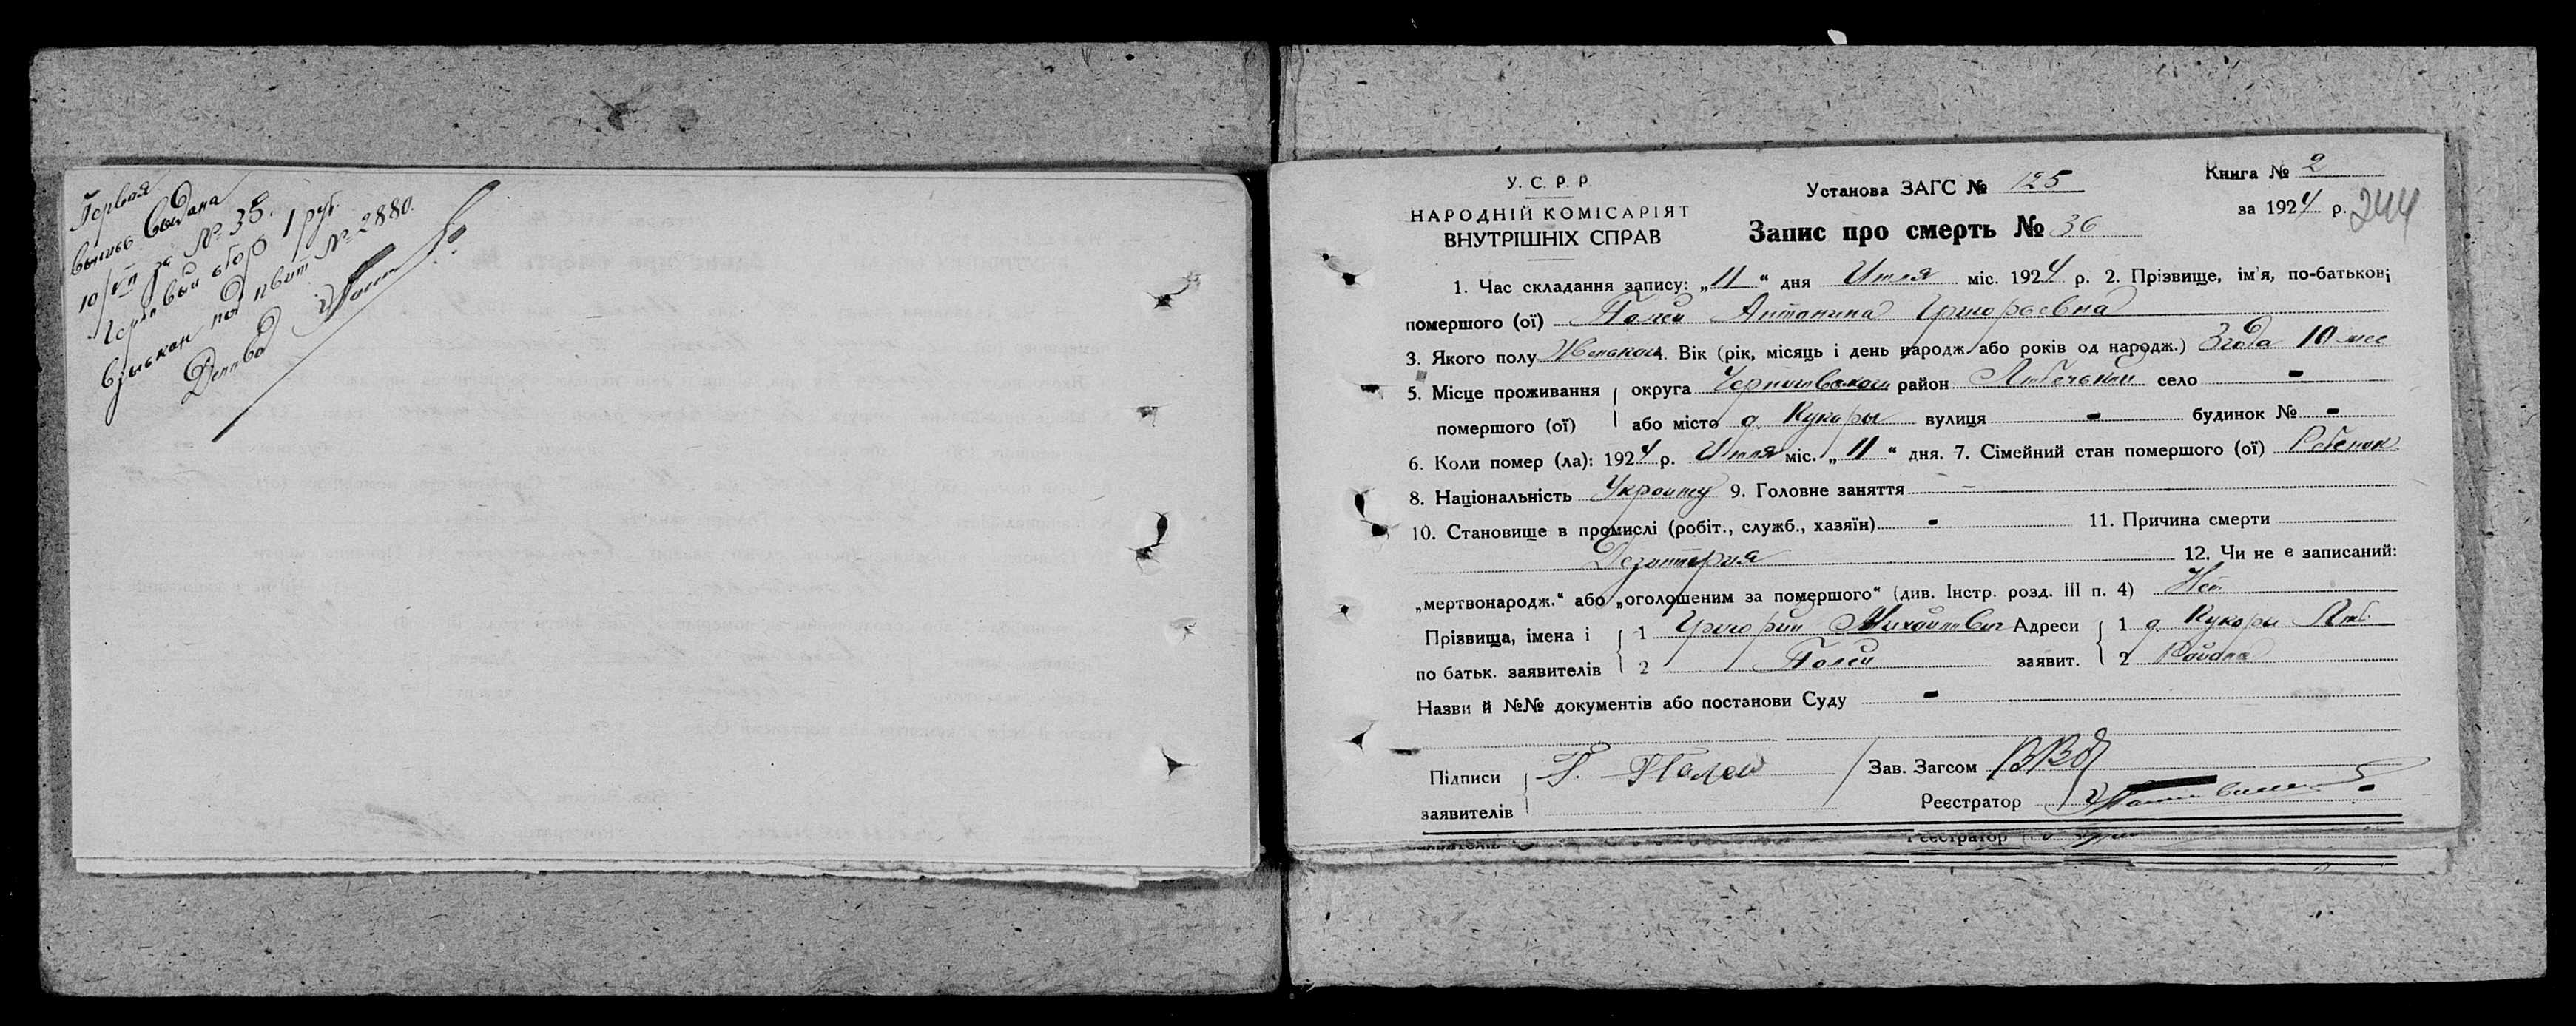 Первая
выпись выдана
10/VII за № 35.
Гербовый сбор 1 руб.
взыскан по квит № 2880.
У. С. Р. Р.
НАРОДНІЙ КОМІСАРІЯТ
ВНУТРІШНІХ СПРАВ
Установа ЗАГС № 125
Запис про смерть № 36
Книга № 2
за 1924 р. 244
1. Час складання запису: „11“ дня Июля міс. 1924 р. 2. Прізвище, ім'я, по-батькові
помершого (ої) Полей Антонина Григорьевна
3. Якого полу Женскаго 4. Вік (рік, місяць і день народж. або років од народж.) 3 года 10 мес
5. Місце проживання округа Черниговского район Любечский село -
помершого (ої) або місто д. Кукоры вулиця - будинок № -
6. Коли помер (ла): 1924 р. Июля міс. „11“ дня. 7. Сімейний стан помершого (ої) Ребенок
8. Національність 9. Головне заняття -
10. Становище в промислі (робіт., служб., хазяїн) - 11. Причина смерти
Дезинтерия 12. Чи не є записаний:
„мертвонародж.“ або „оголошеним за помершого“ (див. Інстр. розд. III п. 4) Нет
Прізвища, імена і 1 Григорий Михайлович Адреси 1 д. Кукоры Люб.
по батьк. заявителів 2 Полей заявит. 2 Района
Назви й №№ документів або постанови Суду -
Підписи Г. Полей Зав. Загсом
заявителів Реєстратор
Реєстратор